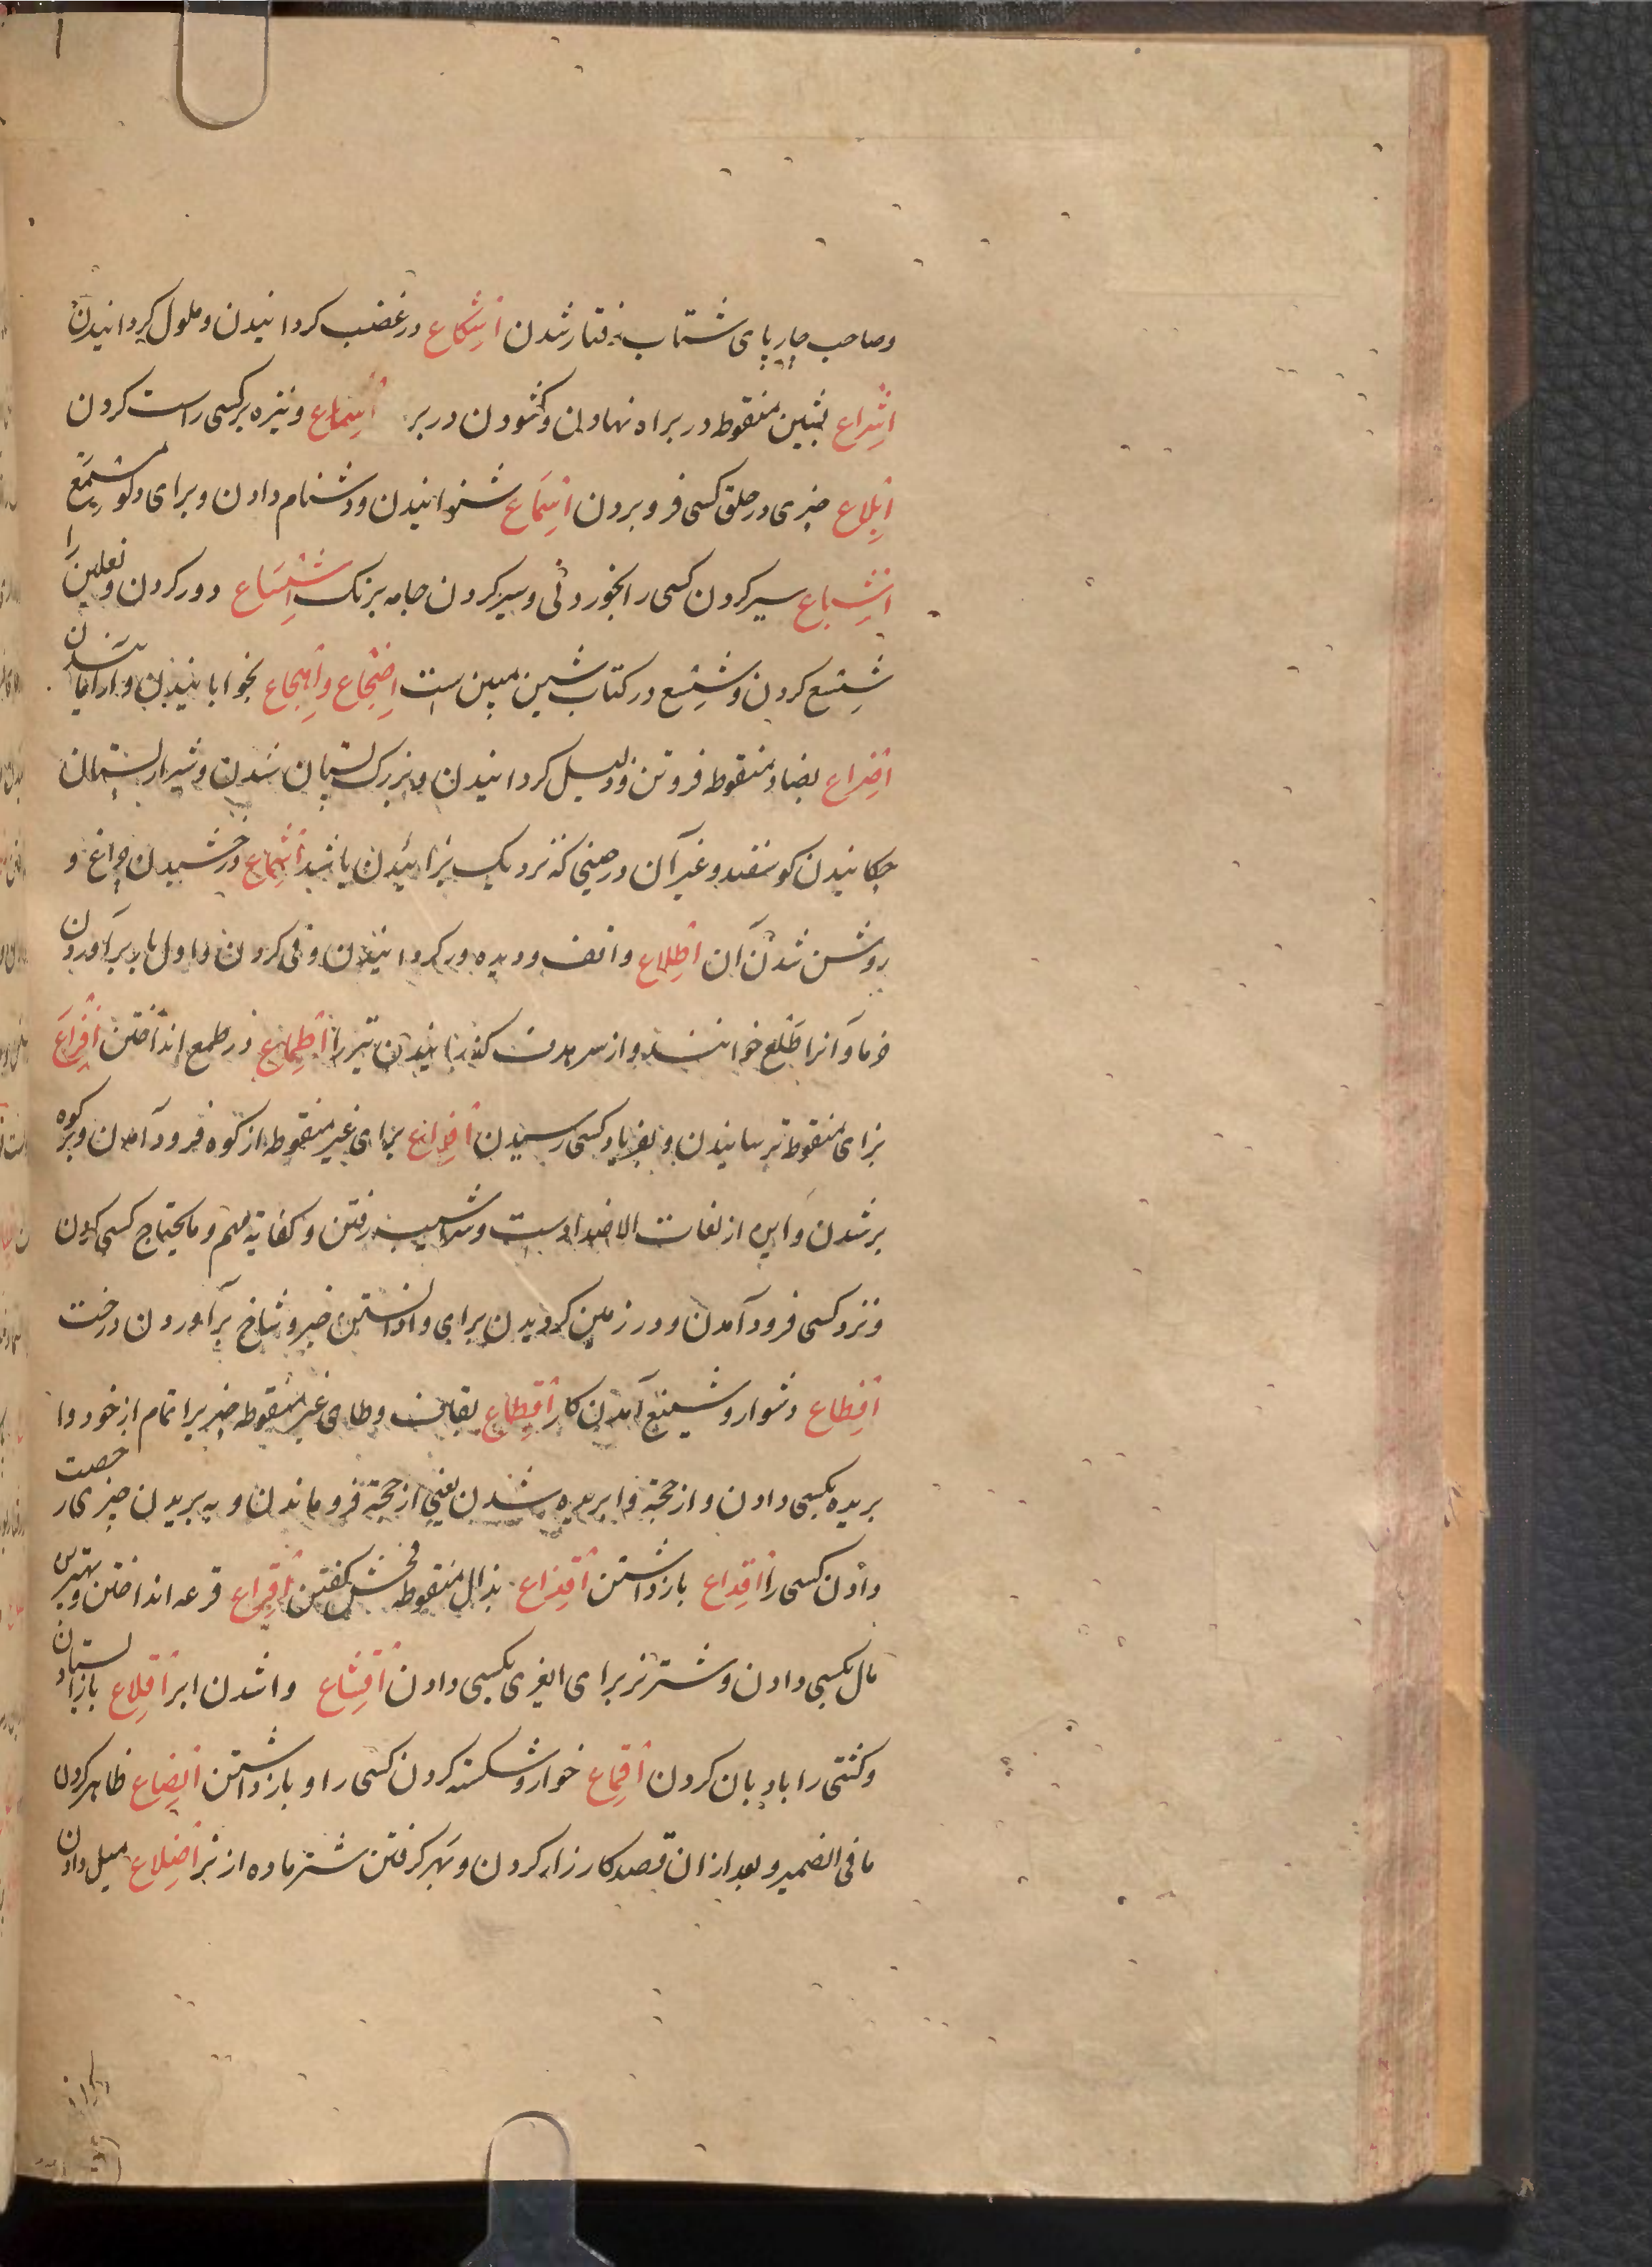 وصاحب چارپای شتاب رفتار شدن اشکاع در غضب کردانیدن و ملول کردانیدن
اشراع بشین منقوط در براه نهادن و کشودن در بر اسماع و نیزه بر کسی راست کردن
ابلاع چیزی در حلق کسی فرو بردن اسماع شنوانیدن و دشنام دادن و برای دلو مسمع
اشباع سیر کردن کسی را بخوردنی و سیر کردن جامه برنک اشساع دور کردن و نعلین را
شسع کردن و شسع در کتاب شین مبین است اضجاع و اهجاع بخوابانیدن و
اضراع بضاد منقوط فروتن و ذلیل کردانیدن و بزرک پستان شدن و شیر از پستان
چکانیدن کوسفند و غیر آن در حینی که نزدیک بزائیدن باشد اشماع درخشیدن چراغ و
روشن شدن آن اطلاع واقف و دیده ور کردانیدن و قی کردن و اول بار برآوردن
خرما و آنرا طلع خوانند و از سر هدف کذرانیدن تیر را اطماع در طمع انداختن افزاع
بزای منقوط ترسانیدن و بفریاد کسی رسیدن افراع برای غیر منقوط از کوه فرود آمدن و بر کوه
بر شدن و این از لغات الاضدادست و سراشیب رفتن و کفایة مهم و مایحتاج کسی کردن
و نزد کسی فرود آمدن و در زمین کردیدن برای وادانستن خبر و شاخ برآوردن درخت
افظاع دشوار و شنیع آمدن کار اقطاع بقاف و طای غیر منقوط چیزیرا تمام از خود وا
بریده بکسی دادن و از حجة وا بریده شدن یعنی از حجة فرو ماندن و به بریدن چیزی رخصت
دادن کسی را اقداع بازداشتن اقذاع بذال منقوط فحش کفتن اقراع قرعه انداختن و بهترین
مال بکسی دادن و شتر نر برای ایغری بکسی دادن اقشاع واشدن ابر اقلاع باز ایستادن
و کشتی را بادبان کردن اقماع خوار و شکسته کردن کسی را و بازداشتن ابضاع ظاهر کردن
ما فی الضمیر و بعد از ان قصد کارزار کردن و بر کرفتن شتر ماده از نر اضلاع میل دادن